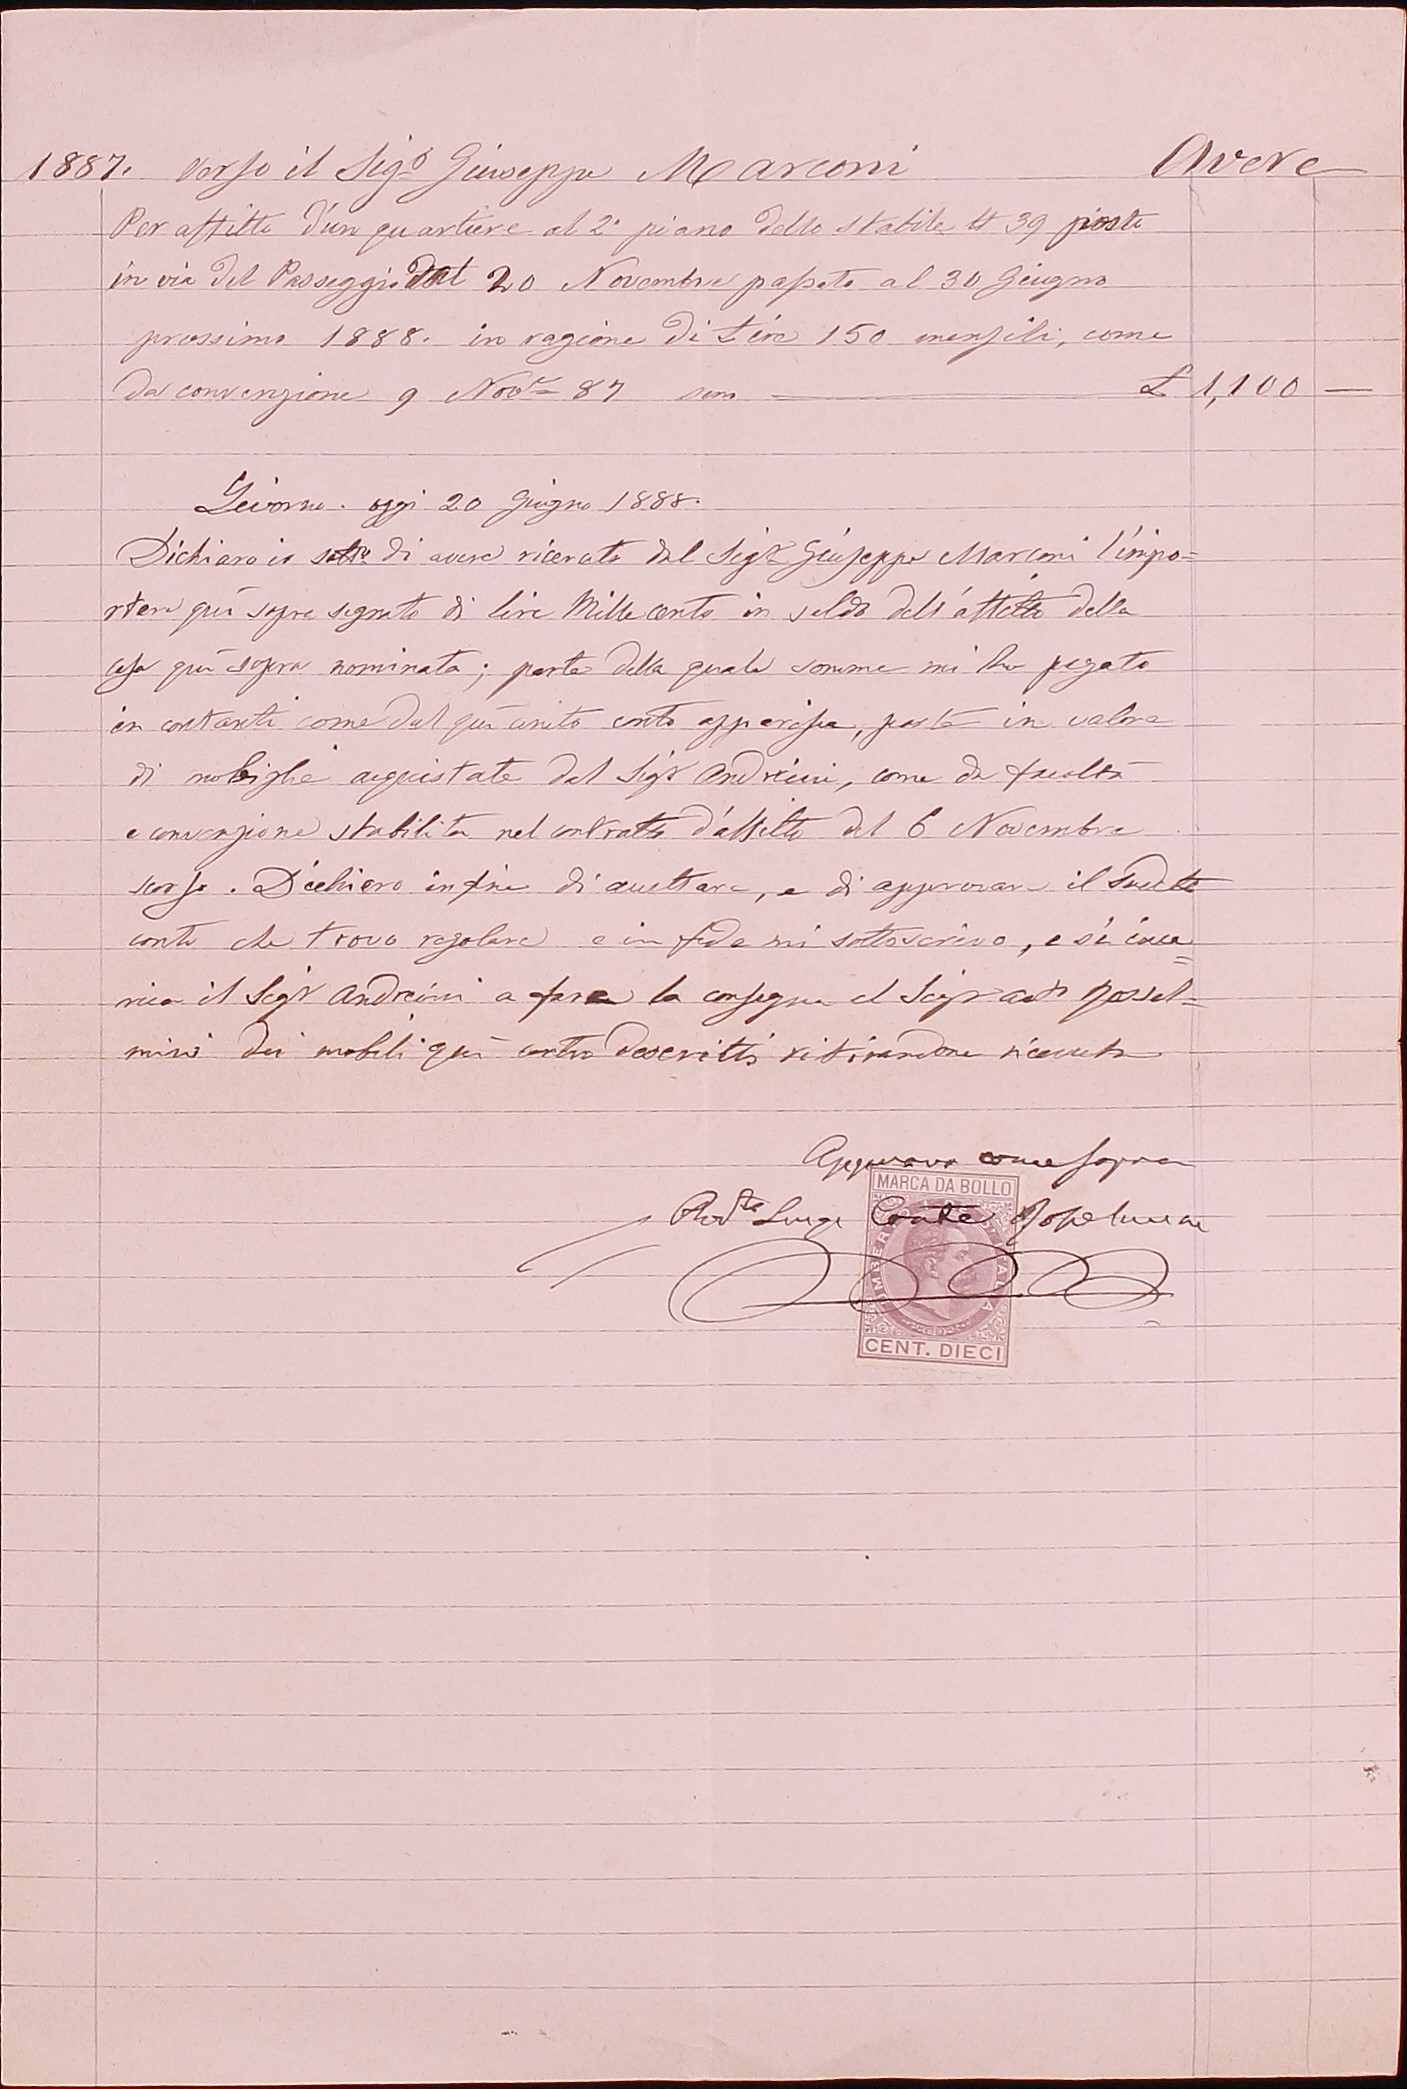 1887. verso il Sigr Giuseppe Marconi Avere
Per affitto d'un quartiere al 2° piano dello stabile N 39 posto
in via del Passeggio dal 20 Novembre passato al 30 Giugno
prossimo 1888. in ragione di Lire 150 mensili, come
da convenzione 9 Nove 87 sono £ 1,100 —
Livorno. oggi 20 Giugno 1888.
Dichiaro io sottto di avere ricevuto dal Sigr Giuseppe Marconi l'impo=
rtare quì sopra segnato di lire Mille cento in saldo dell'affitto della
casa quì sopra nominata; parte della quale somma mi ha pagato
in contanti come dal quì unito conto apparisce, parte in valore
di mobiglie acquistate dal Sigr Andreini, come da facoltà
e convenzione stabilita nel contratto d'affitto del 6 Novembre
scorso. Dichiaro infine di accettare, e di approvare il sudetto
conto che trovo regolare e in fede mi sottoscrivo, e si inca=
rica il Sigr Andreini a fare la consegna al Sigr
dei mobili quì contro descritti ritirandone ricevuta
Approvo come sopra
Luigi Conte
MARCA DA BOLLO
UMBERTO I RE D'ITALIA
CENT. DIECI